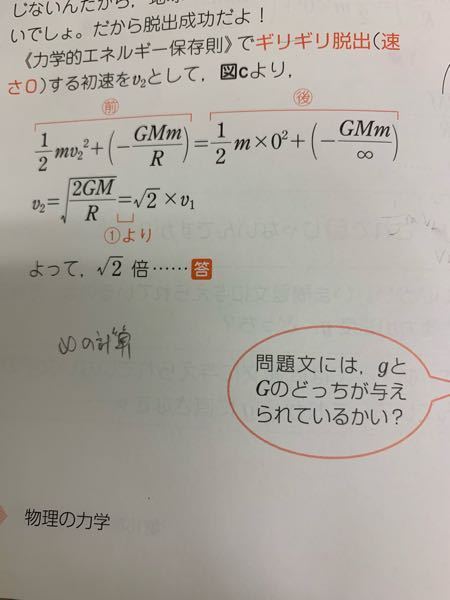 じないんだから，地球
いでしょ。だから脱出成功だよ！
《力学的エネルギー保存則》でギリギリ脱出(速
さ0)する初速をv₂として，図cより，
前 後
1/2 mv₂² + (−GMm/R) = 1/2 m×0² + (−GMm/∞)
v₂=√(2GM/R)=√2×v₁
①より
よって，√2 倍……答
∞の計算
問題文には，gと
Gのどっちが与え
られているかい？
物理の力学